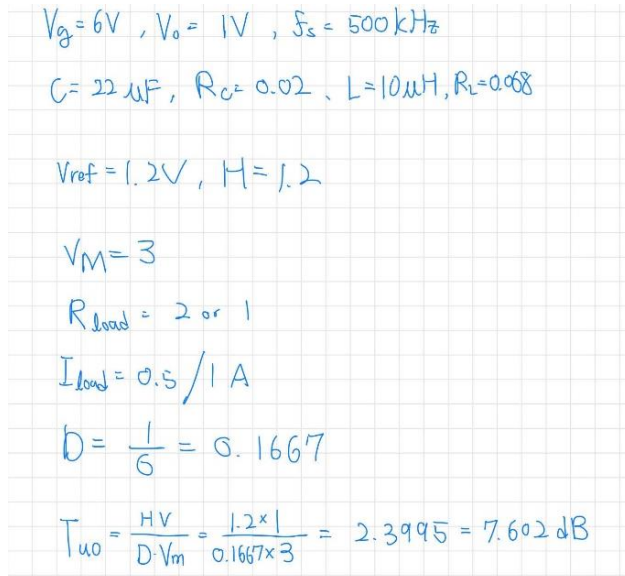 Vg = 6V , Vo = 1V , fs = 500 kHz
C = 22 μF, Rc = 0.02 、 L = 10 μH, RL = 0.068
Vref = 1.2V , H = 1.2
VM = 3
Rload = 2 or 1
Iload = 0.5 / 1 A
D = 1/6 = 0.1667
Tuo = HV/D·Vm = 1.2×1/0.1667×3 = 2.3995 = 7.602 dB